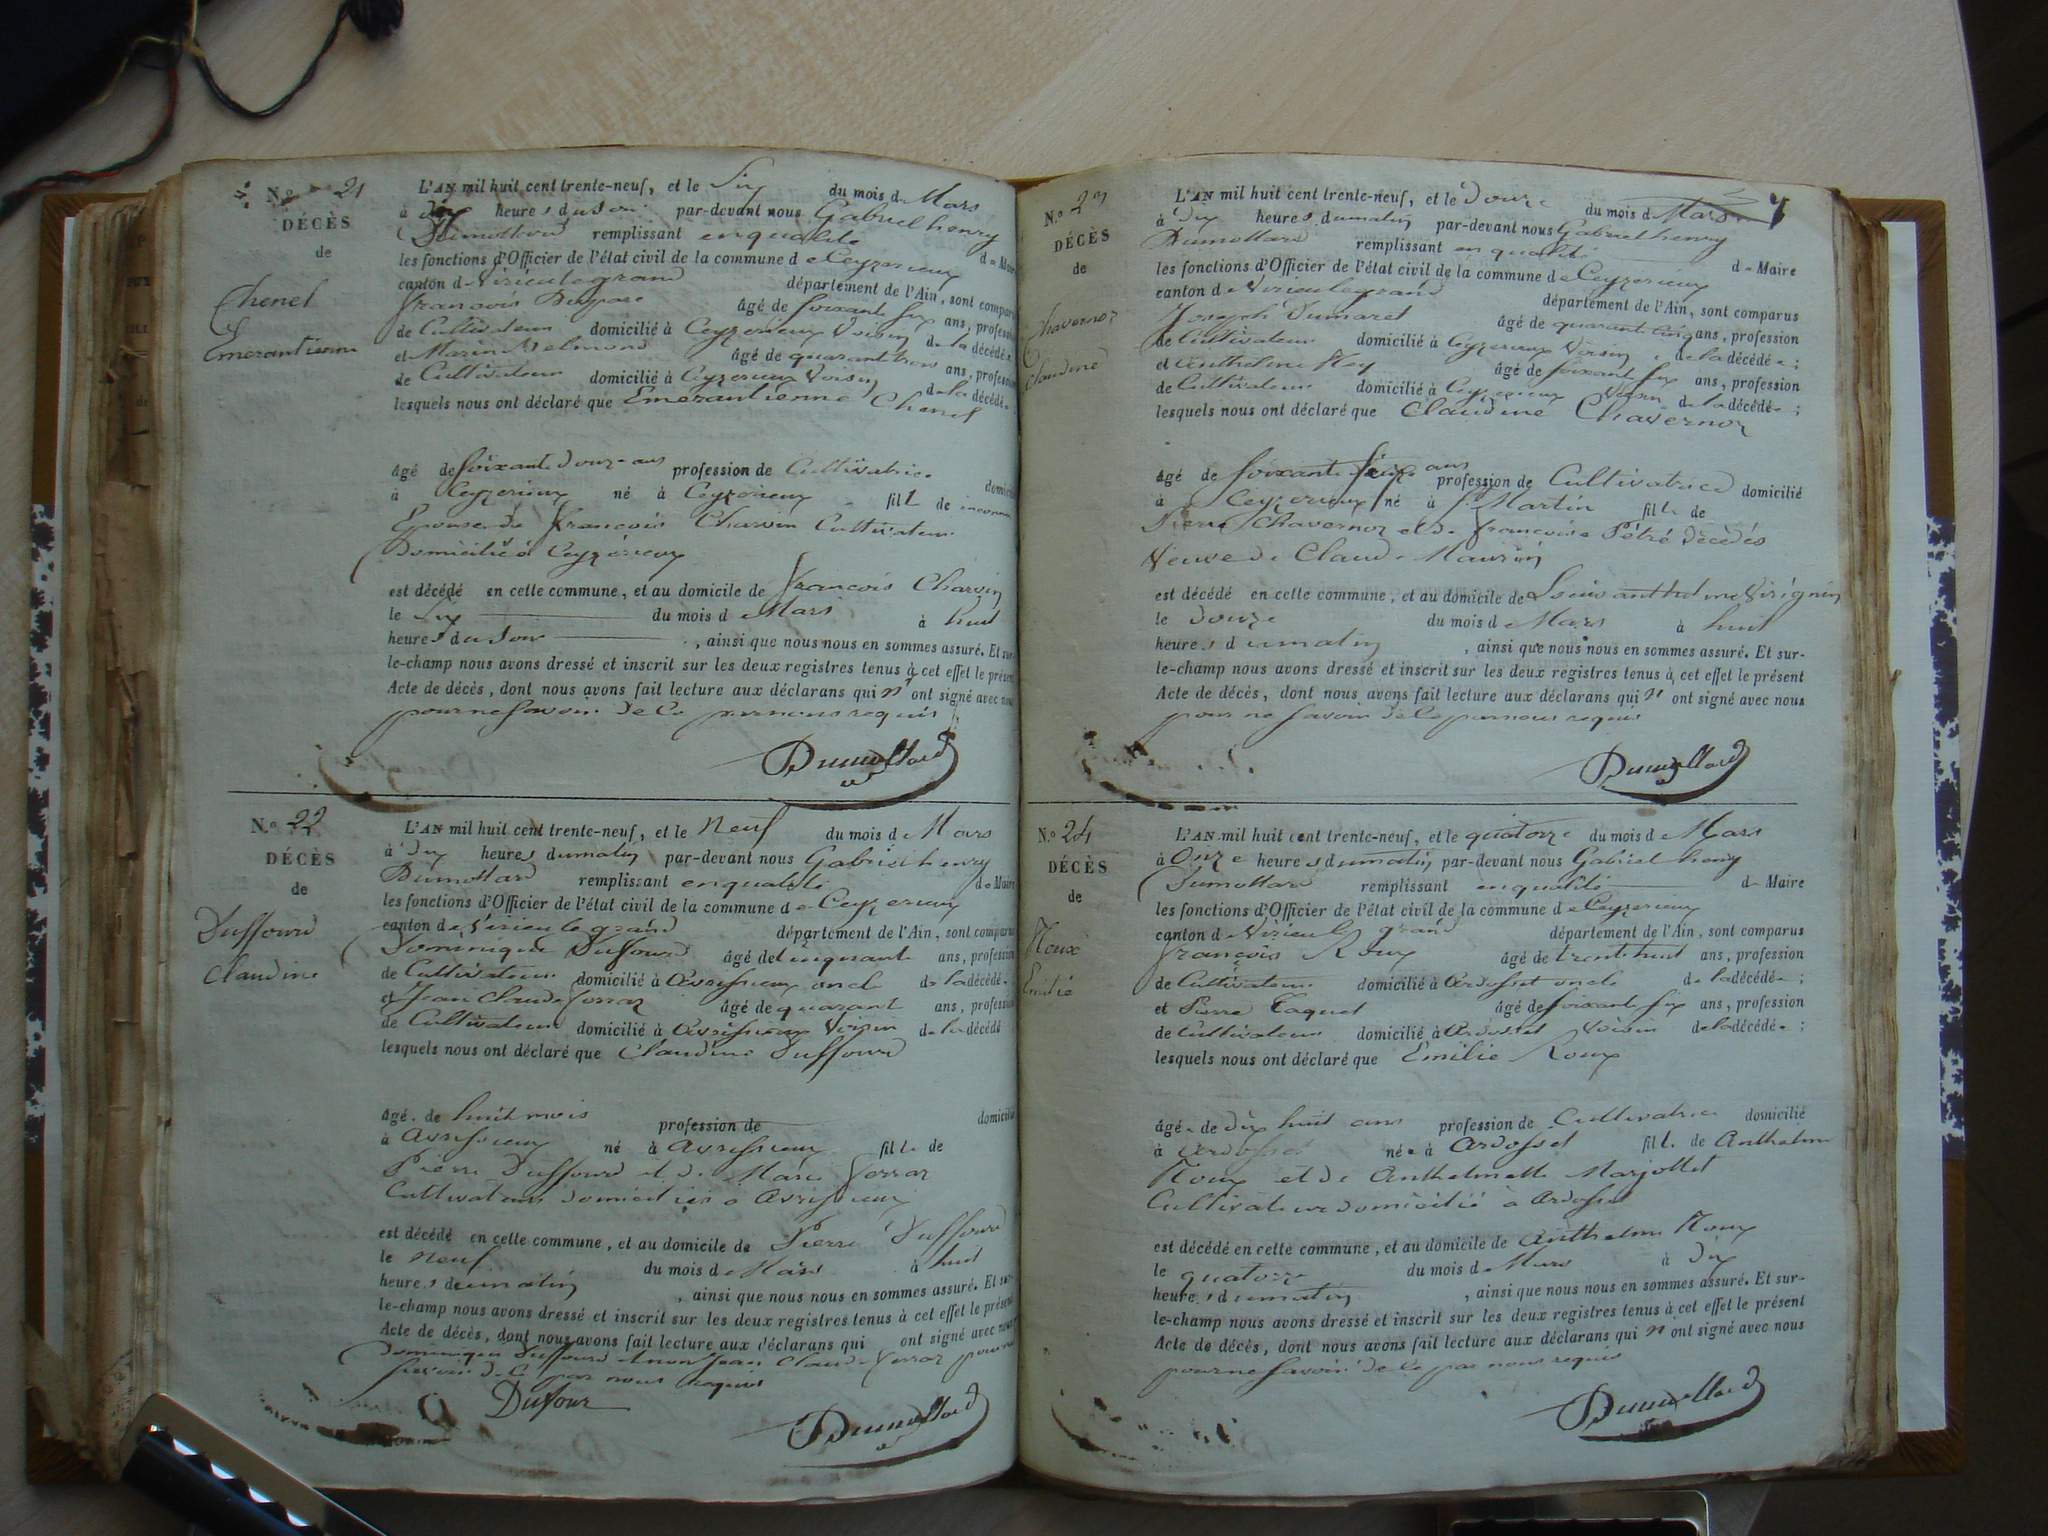 N.° 21
DÉCÈS
de
Chenel
Emerantienne
L'AN mil huit cent trente-neuf, et le Six du mois de Mars
à dix heures du soir par-devant nous Gabriel henry
Dumollard remplissant en qualité de Maire
les fonctions d'Officier de l'état civil de la commune de Ceyzerieux
canton de Virieulegrand département de l'Ain, sont comparus
françois âgé de soixante six ans, profession
de Cultivateur domicilié à Ceyzerieux Voisin de la décédée
et Marin Belmond âgé de quarante trois ans, profession
de Cultivateur domicilié à Ceyzerieux Voisin de la décédée
lesquels nous ont déclaré que Emerantienne Chenel
âgé de soixante douze ans profession de Cultivatrice
à Ceyzerieux né à Ceyzerieux fille de
Epouse de François Charvin Cultivateur
Domicilié à Ceyzérieux
est décédé en cette commune, et au domicile de François Charvin
le Six du mois de Mars à huit
heures du soir, ainsi que nous nous en sommes assuré. Et sur-
le-champ nous avons dressé et inscrit sur les deux registres tenus à cet effet le présent
Acte de décès, dont nous avons fait lecture aux déclarans qui n'ont signé avec nous
pour ne savoir de ce par nous requis
Dumollard
N.° 22
DÉCÈS
de
Duffourd
Claudine
L'AN mil huit cent trente-neuf, et le Neuf du mois de Mars
à dix heures dumatin par-devant nous Gabriel henry
Dumollard remplissant en qualité de Maire
les fonctions d'Officier de l'état civil de la commune de Ceyzerieux
canton de Virieu le grand département de l'Ain, sont comparus
Dominique Duffourd âgé de cinquante ans, profession
de Cultivateur domicilié à Avrissieux oncle de la décédée
et Jean Claude Forrar âgé de quarante ans, profession
de Cultivateur domicilié à Avrissieux Voisin de la décédé
lesquels nous ont déclaré que Claudine Duffourd
âgé de huit mois profession de domicilié
à Avrissieux né à Avrissieux fille de
Pierre Duffourd et de Marie Forrar
Cultivateurs domiciliés à Avrissieux
est décédé en cette commune, et au domicile de Pierre Duffourd
le neuf du mois de Mars à huit
heures dumatin, ainsi que nous nous en sommes assuré. Et sur-
le-champ nous avons dressé et inscrit sur les deux registres tenus à cet effet le présent
Acte de décès, dont nous avons fait lecture aux déclarans qui ont signé avec nous
Dominique Duffourd et non Jean Claude Forrar pour ne
savoir de ce par nous requis
Dufour
Dumollard
7
N.° 23
DÉCÈS
de
Chavernoz
Claudine
L'AN mil huit cent trente-neuf, et le Douze du mois de Mars
à dix heures dumatin par-devant nous Gabriel henry
Dumollard remplissant en qualité de Maire
les fonctions d'Officier de l'état civil de la commune de Ceyzerieux
canton de Virieulegrand département de l'Ain, sont comparus
Joseph Dumarel âgé de quarante cinq ans, profession
de Cultivateur domicilié à Ceyzerieux Voisin de la décédée;
et Anthelme Rey âgé de soixante six ans, profession
de Cultivateur domicilié à Ceyzerieux Voisin de la décédée;
lesquels nous ont déclaré que Claudine Chavernoz
âgé de soixante ans profession de Cultivatrice domicilié
à Ceyzerieux né à S.Martin fille de
Pierre Chavernoz et de françoise Pétré Décédés
Veuve de Claude Maurin
est décédé en cette commune, et au domicile de Sieur anthelme Virignin
le Douze du mois de Mars à huit
heures dumatin, ainsi que nous nous en sommes assuré. Et sur-
le-champ nous avons dressé et inscrit sur les deux registres tenus à cet effet le présent
Acte de décès, dont nous avons fait lecture aux déclarans qui n'ont signé avec nous
pour ne savoir de ce par nous requis
Dumollard
N.° 24
DÉCÈS
de
Roux
Emilie
L'AN mil huit cent trente-neuf, et le quatorze du mois de Mars
à Onze heures dumatin par-devant nous Gabriel henry
Dumollard remplissant en qualité de Maire
les fonctions d'Officier de l'état civil de la commune de Ceyzerieux
canton de Virieu le grand département de l'Ain, sont comparus
François Roux âgé de trente huit ans, profession
de Cultivateur domicilié à Ardosset oncle de la décédée;
et Pierre Taquet âgé de soixante six ans, profession
de Cultivateur domicilié à Ardosset Voisin de la décédée;
lesquels nous ont déclaré que Emilie Roux
âgée de dix huit ans profession de Cultivatrice domicilié
à Ardosset née à Ardosset fille de Anthelme
Roux et de Anthelmette Marjollet
Cultivateur domicilié à Ardosset
est décédé en cette commune, et au domicile de Anthelme Roux
le quatorze du mois de Mars à Dix
heures dumatin, ainsi que nous nous en sommes assuré. Et sur-
le-champ nous avons dressé et inscrit sur les deux registres tenus à cet effet le présent
Acte de décès, dont nous avons fait lecture aux déclarans qui n'ont signé avec nous
pour ne savoir de ce par nous requis
Dumollard